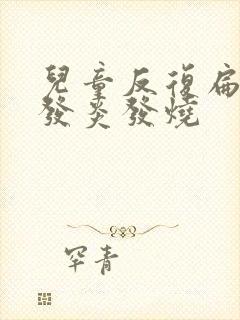 兒童反復扁
發炎發燒
罕青